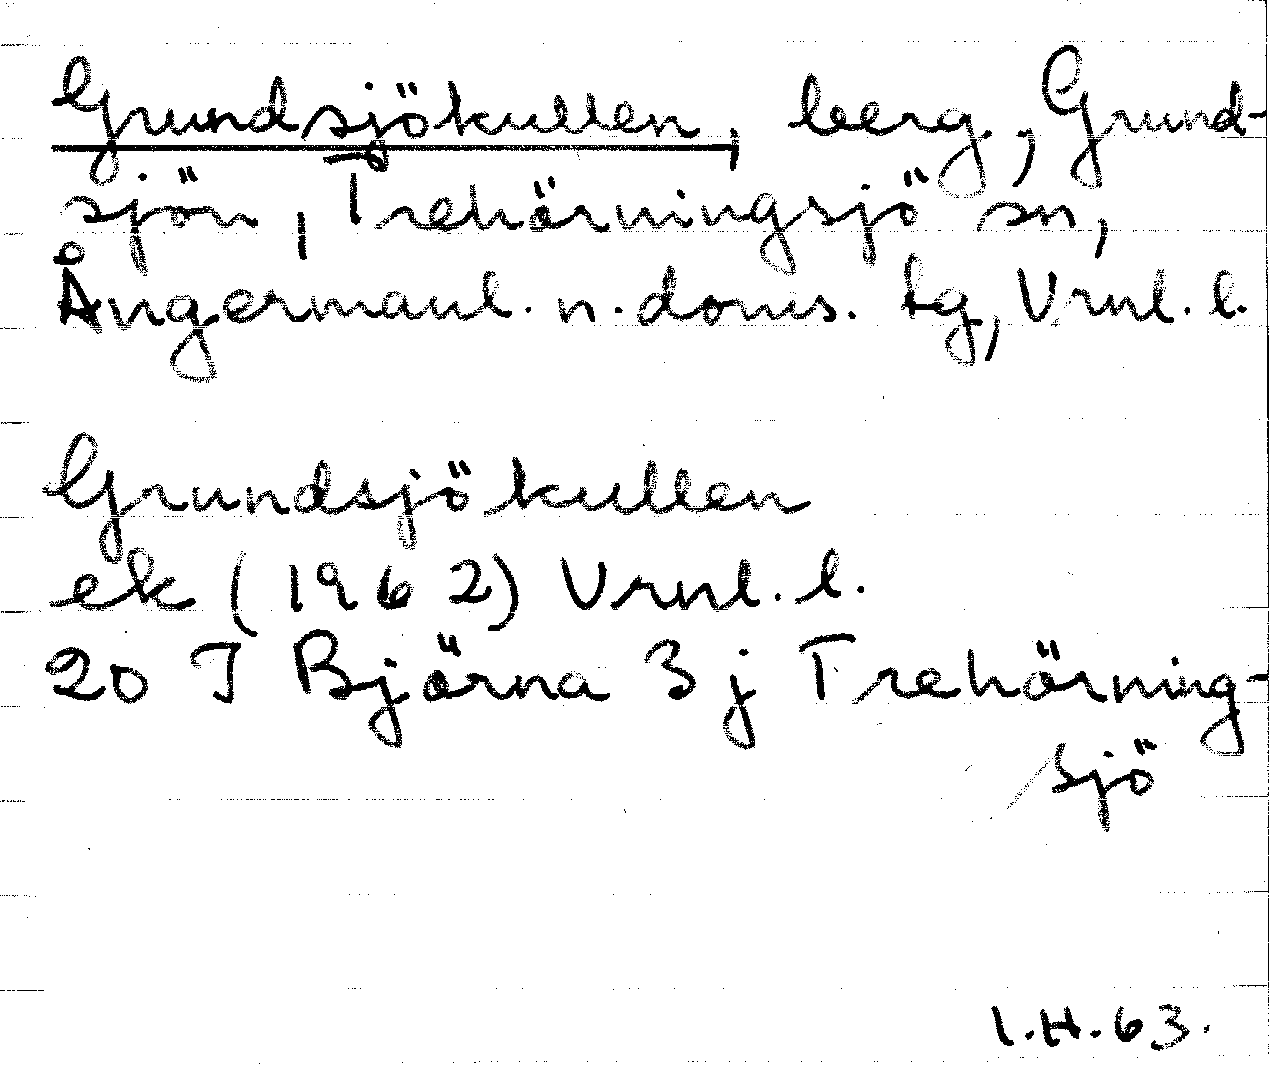 Grundsjökullen, berg., Grund-
sjön, Trehörningsjö sn,
Ångermanl. n. doms. tg, Vrnl. l.
Grundsjökullen
ek (1962) Vrnl. l.
20 J Björna 3 j Trehörning-
sjö
I.H. 63.